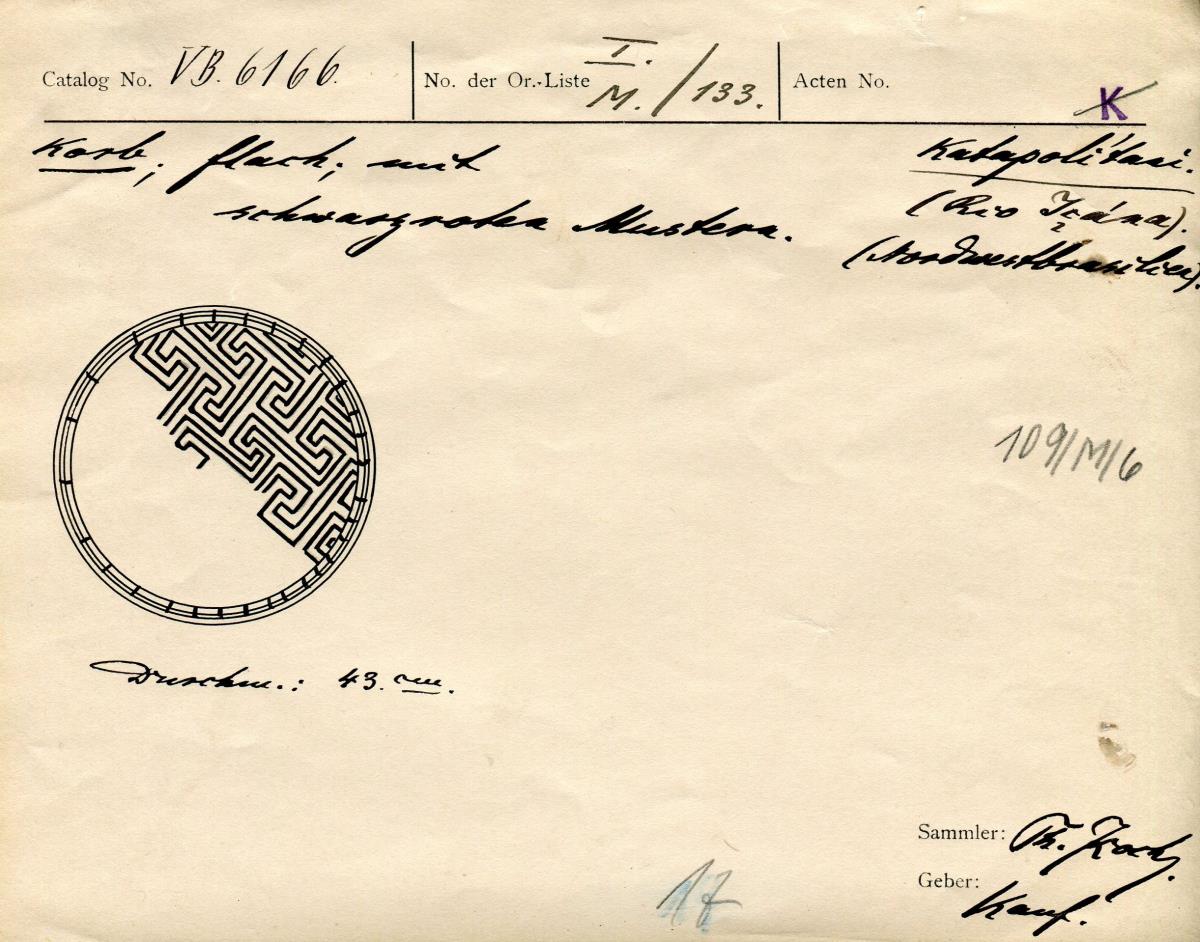 Catalog No. VB. 6166.
No. der Or.-Liste I. M. / 133.
Acten No.
K
Korb; flach; mit
schwarzroten Mustern.
Katapolítani.
(Rio Içána).
(Nordwestbrasilien).
109/M/6
Durchm.: 43. cm.
Sammler: Th. Koch.
Geber: Kauf.
17